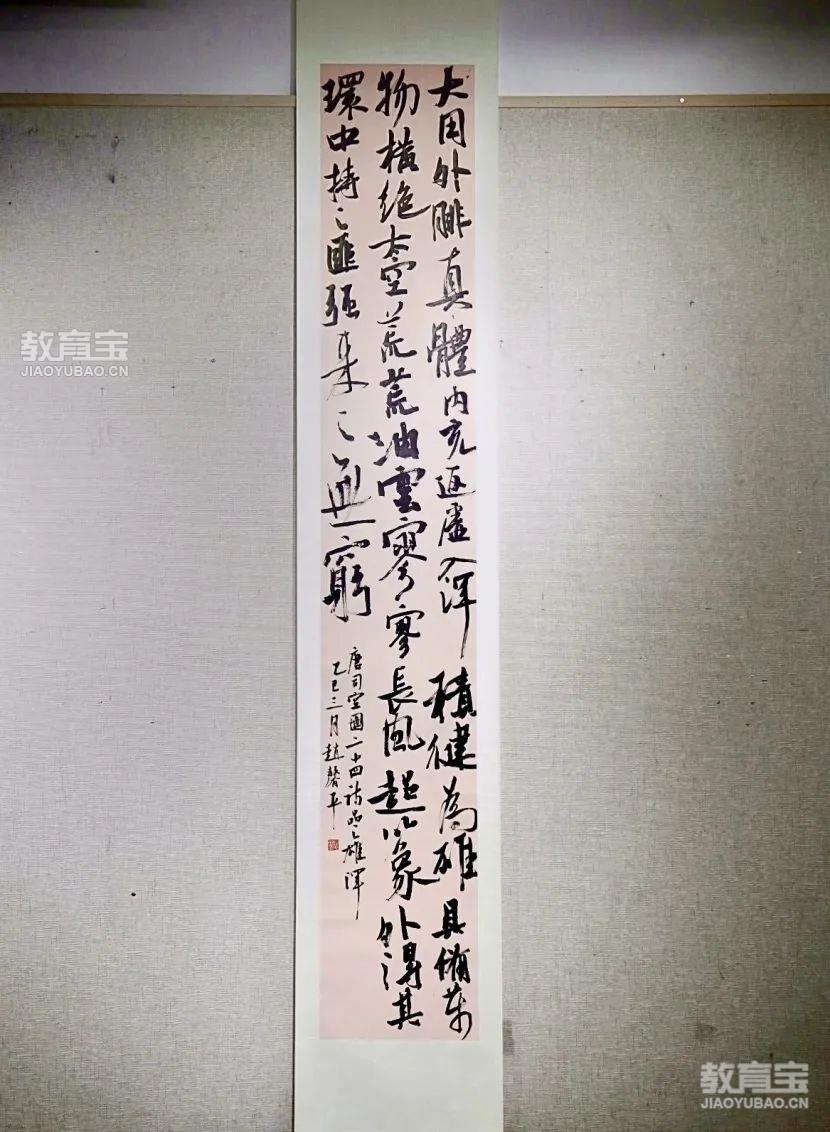 大用外腓真體内充返虛入渾積健為雄具備萬
物橫絶太空荒荒油雲寥寥長風超以象外得其
環中持之匪强來之無窮
唐司空圖二十四詩品之雄渾
乙巳三月趙馨平
教育宝
JIAOYUBAO.CN
教育宝
JIAOYUBAO.CN